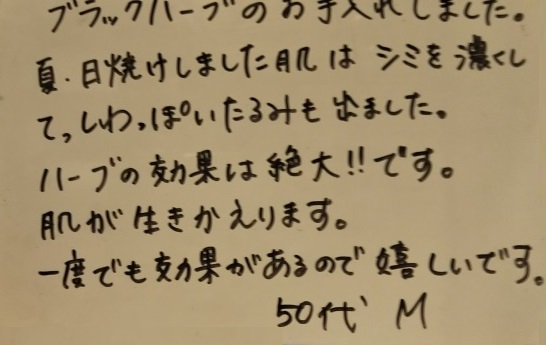 ブラックハーブのお手入れしました。
夏・日焼けしました肌は シミを濃くし
て、しわっぽいたるみも出ました。
ハーブの効果は絶大!!です。
肌が生きかえります。
一度でも効果があるので嬉しいです。
50代 M